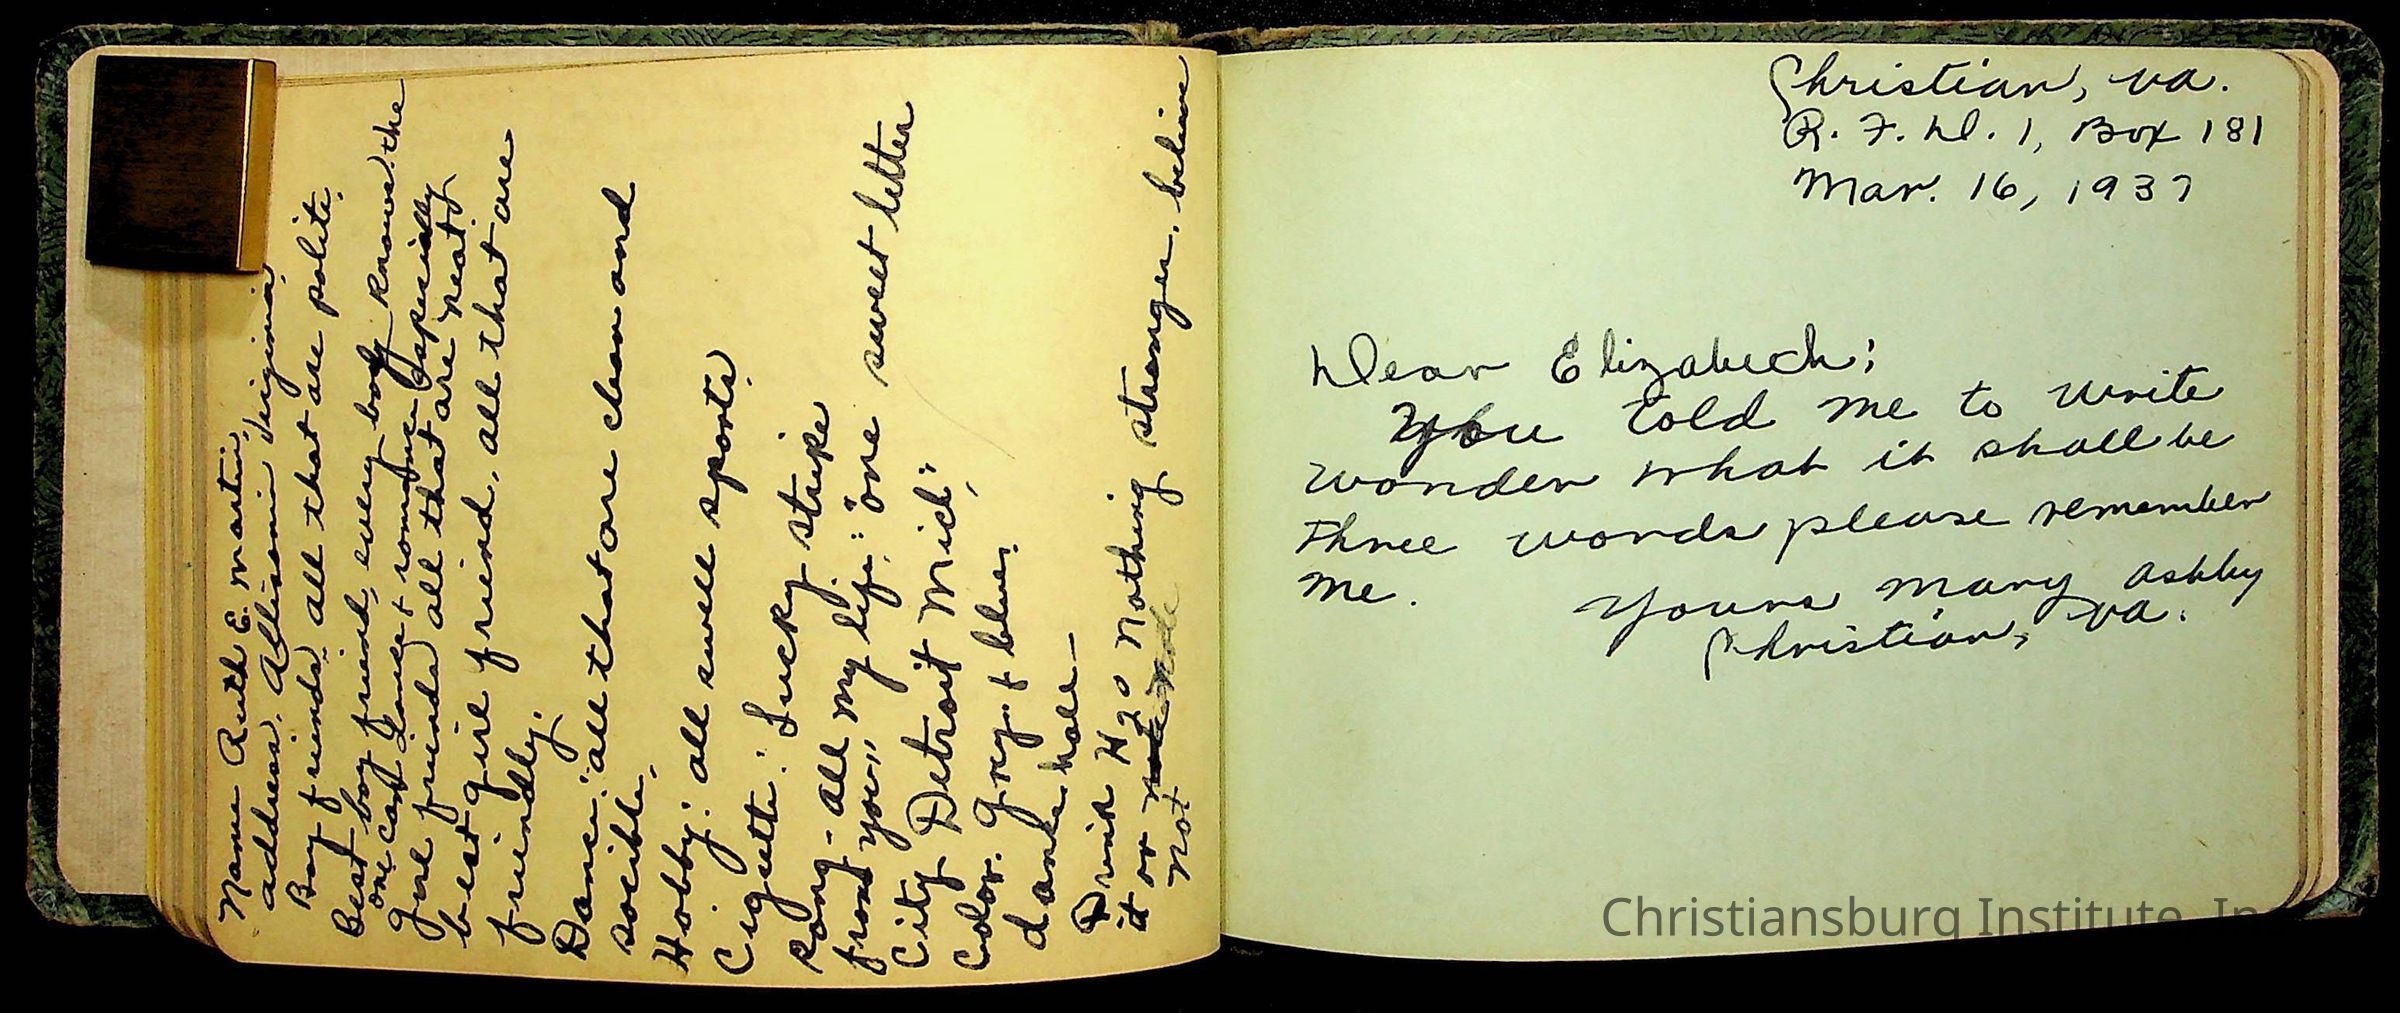 Name Ruth E. Martin,
address. Allisonia Virginia,
Boy friends. all that are polite.
Best boy friend, every body knows. the
one Cast Lance & romance Especially
Girl friends all that are neat,
best girl friend. all that are
friendly.
Dance: all that are clean and
socible,
Hobby: all swell sports,
Cigette: Lucky stripe
song - all my life: "one sweet letter
from you,"
City Detroit Mich;
Color. Grey & blue;
dance hall—
Drink H20 Nothing stronger. believe
it or
not
Christian, Va.
R. F. D. 1, Box 181
Mar. 16, 1937
Dear Elizabeth:
You told me to write
wonder what it shall be
three words please remember
me.
Yours Mary Ashby
Christian, Va.
Christiansburg Institute, Inc